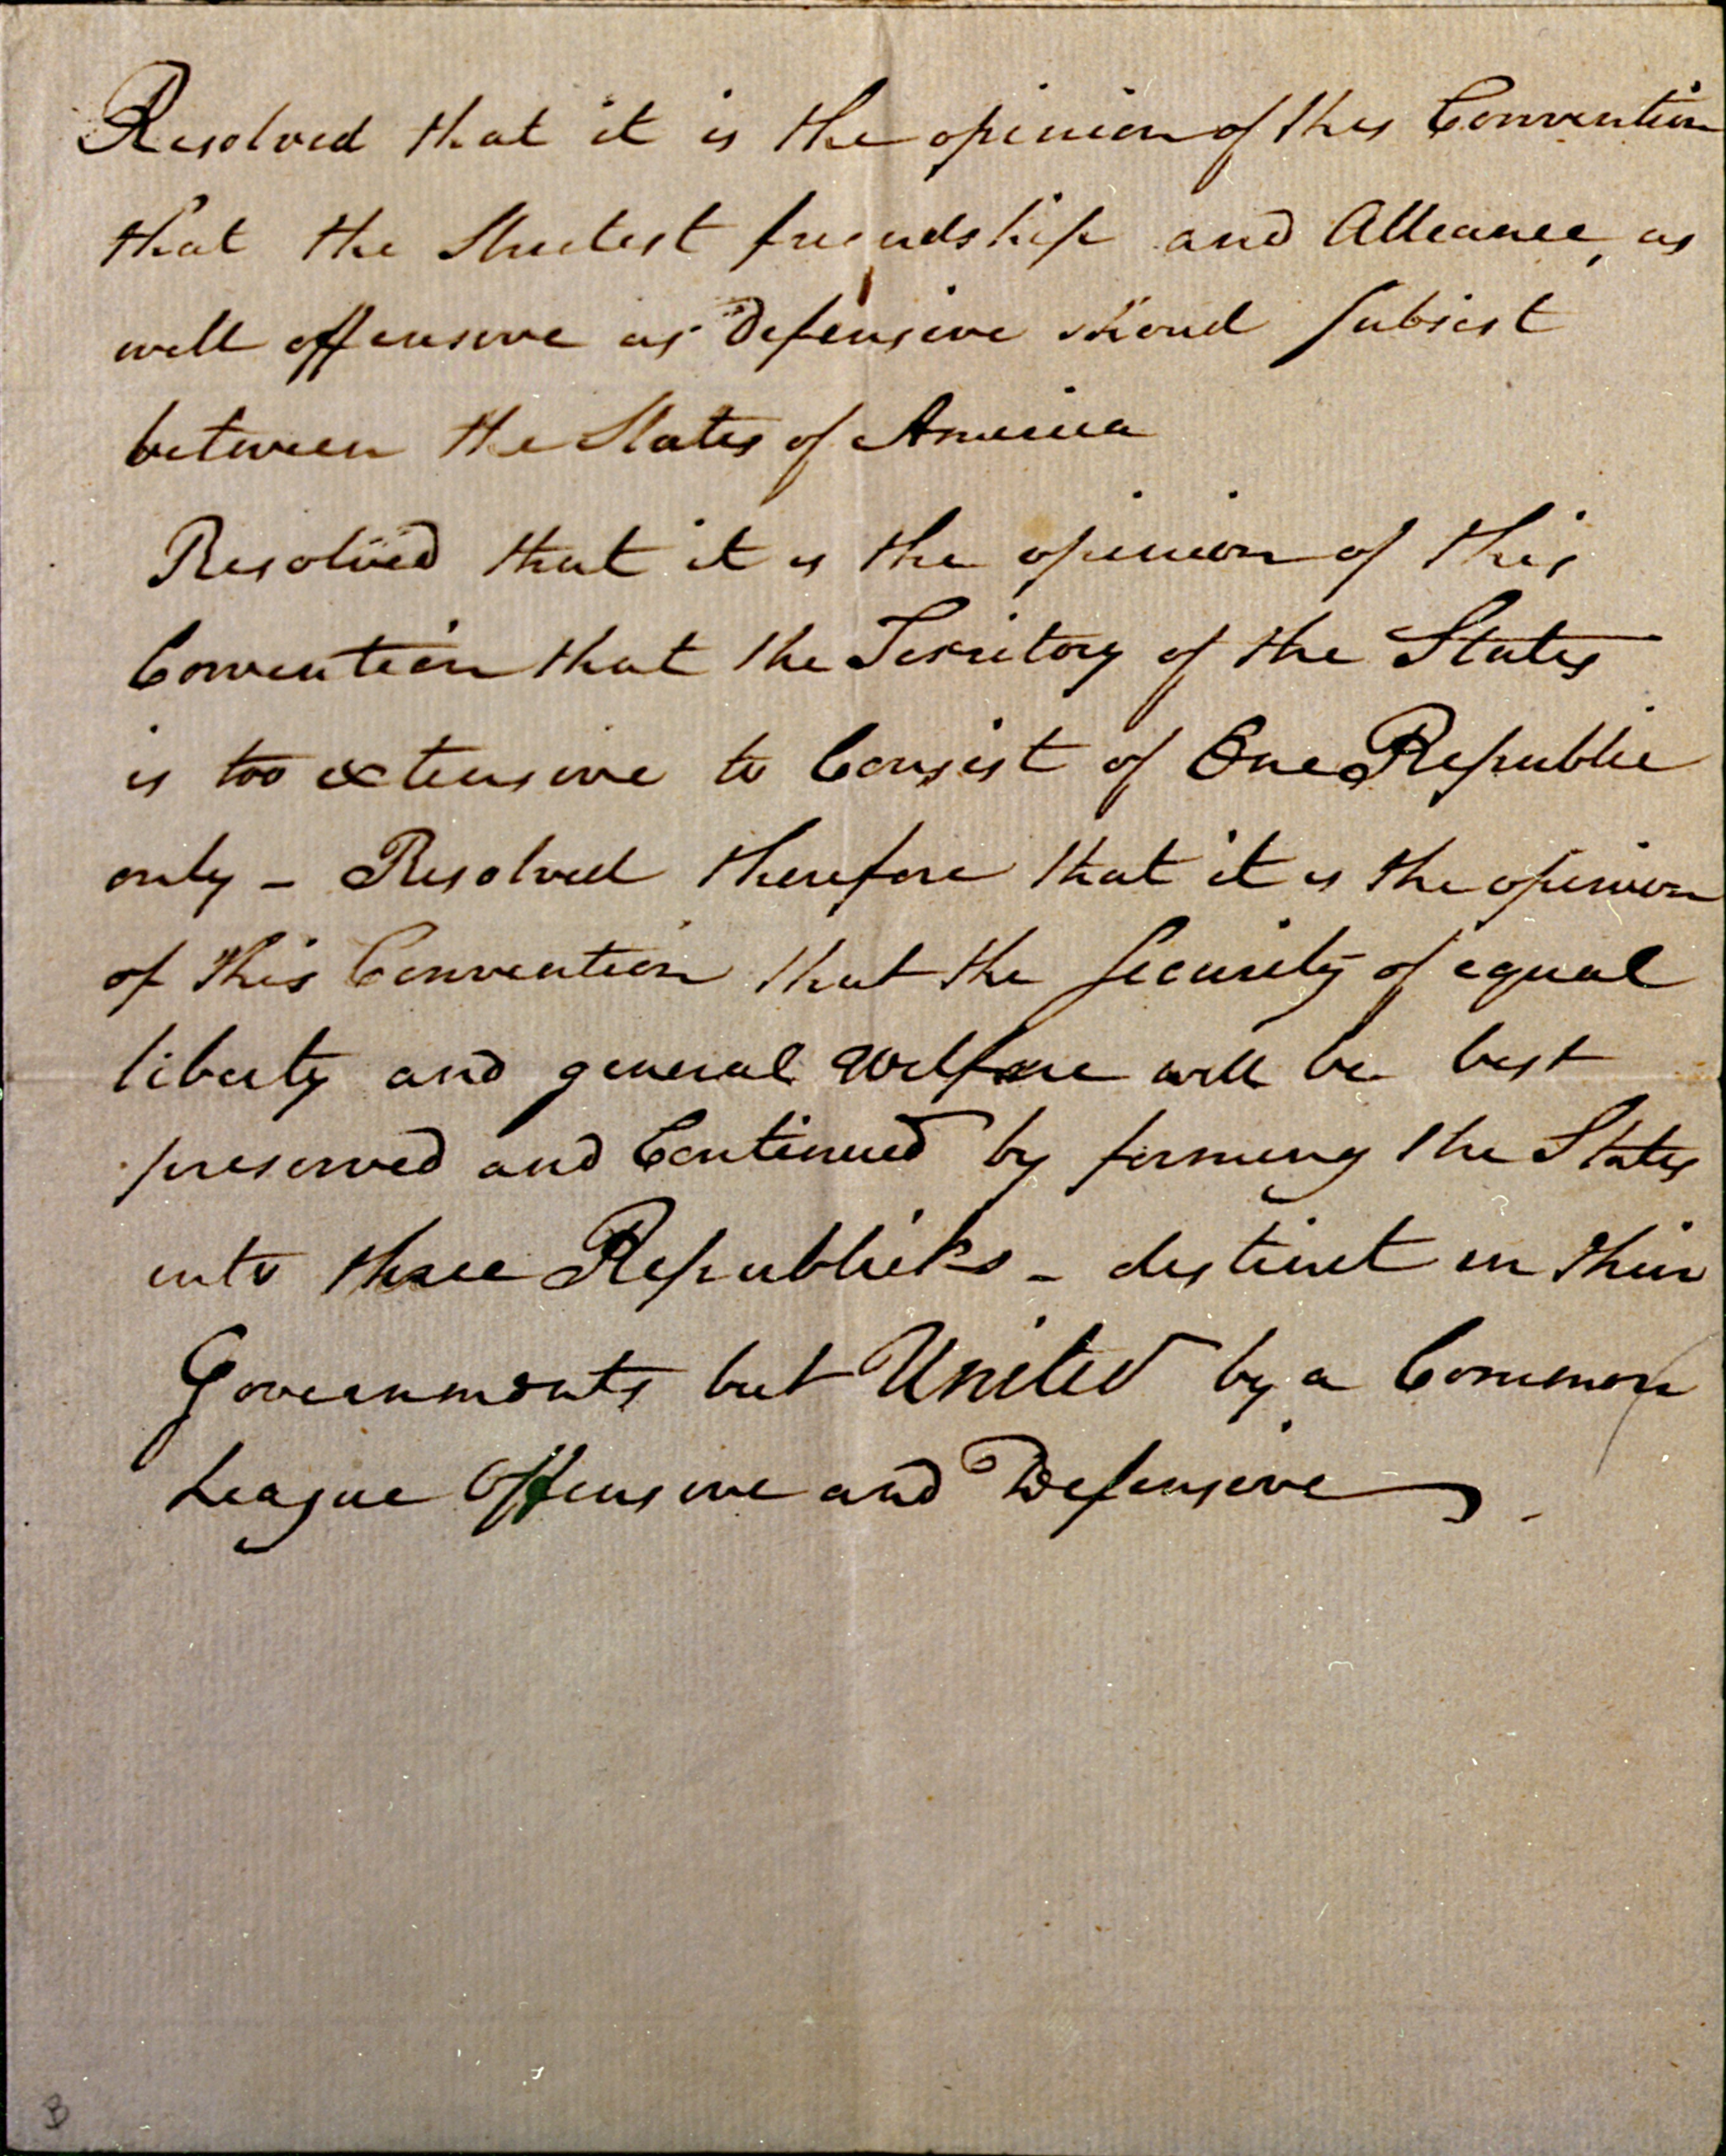 Resolved that it is the opinion of this Convention
that the Strictest friendship and Alleance, as
well offensive as Defensive shoud Subsist
between the States of America
Resolved that it is the opinion of this
Convention that the Territory of the States
is too extensive to Consist of One Republic
only – Resolved therefore that it is the opinion
of this Convention that the Security of equal
liberty and general Welfare will be best
preserved and Continued by forming the States
into three Republicks – distinct in their
Governments but United by a Common
League Offensive and Defensive .
B